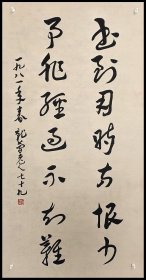 书到用时方恨少
事非經過不知難
一九八一年春
老人七十九